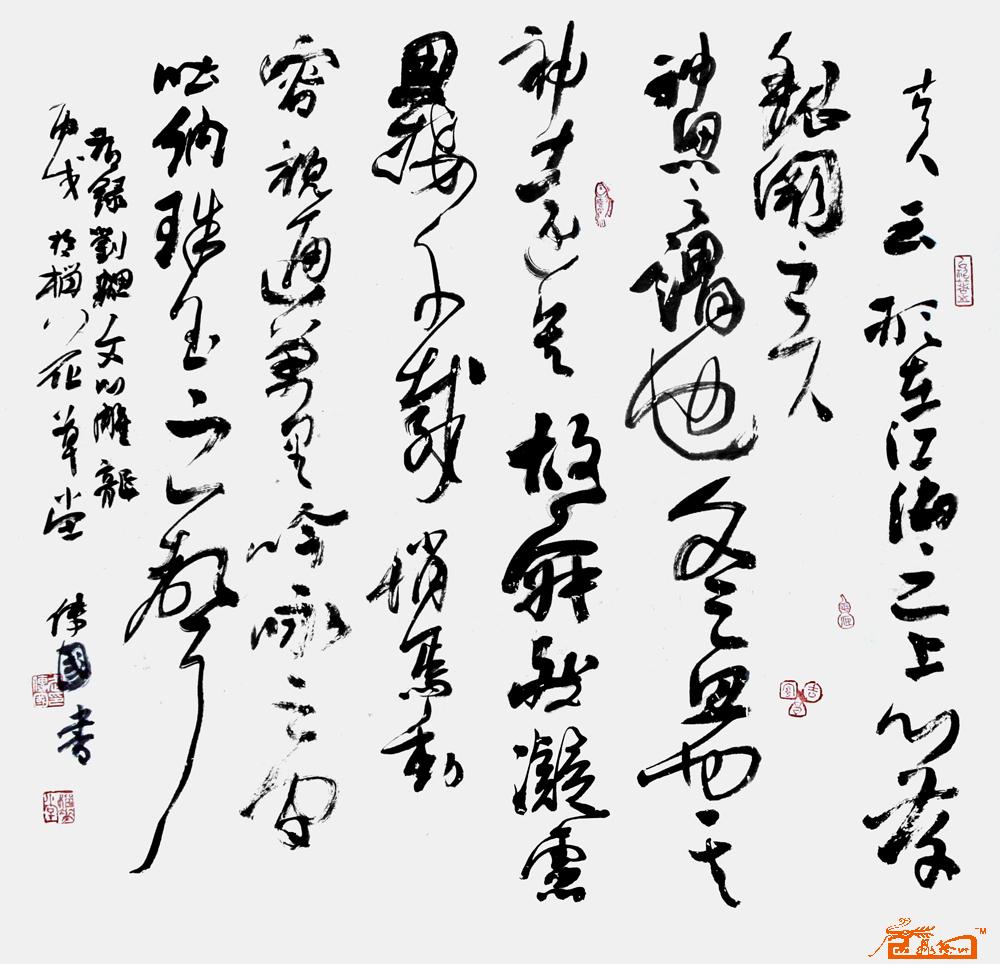 古人云形在江海之上心存
魏闕之下
神思之謂也文之思也其
神遠矣故寂然凝慮
思接千載悄焉動
容視通萬里吟詠之間
吐納珠玉之聲
右錄劉勰文心雕龍
丙戌於草堂 國書